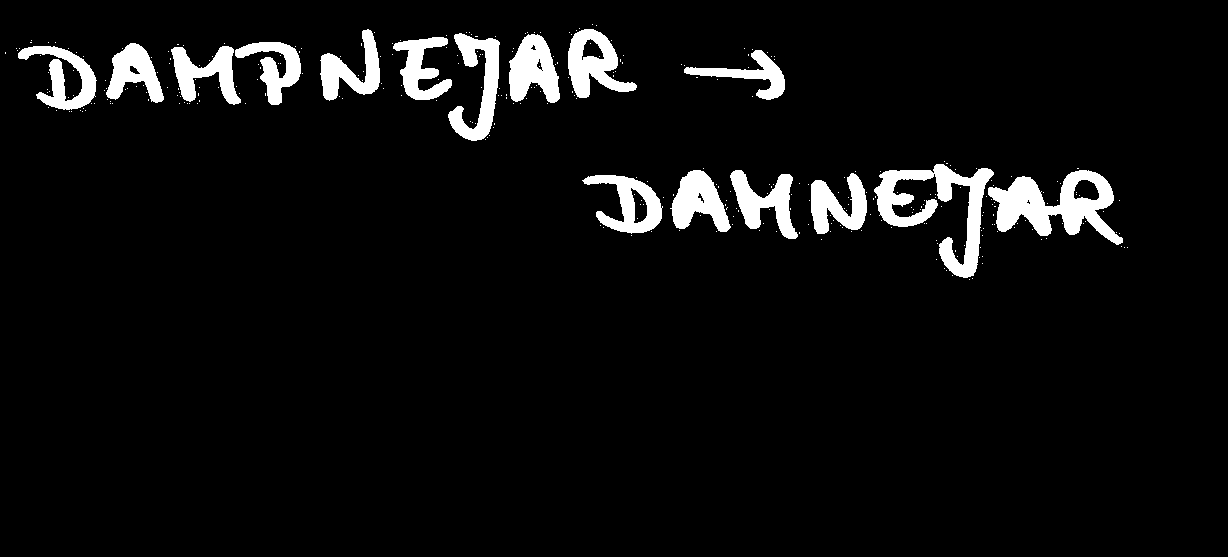 DAMPNEJAR →
DAMNEJAR